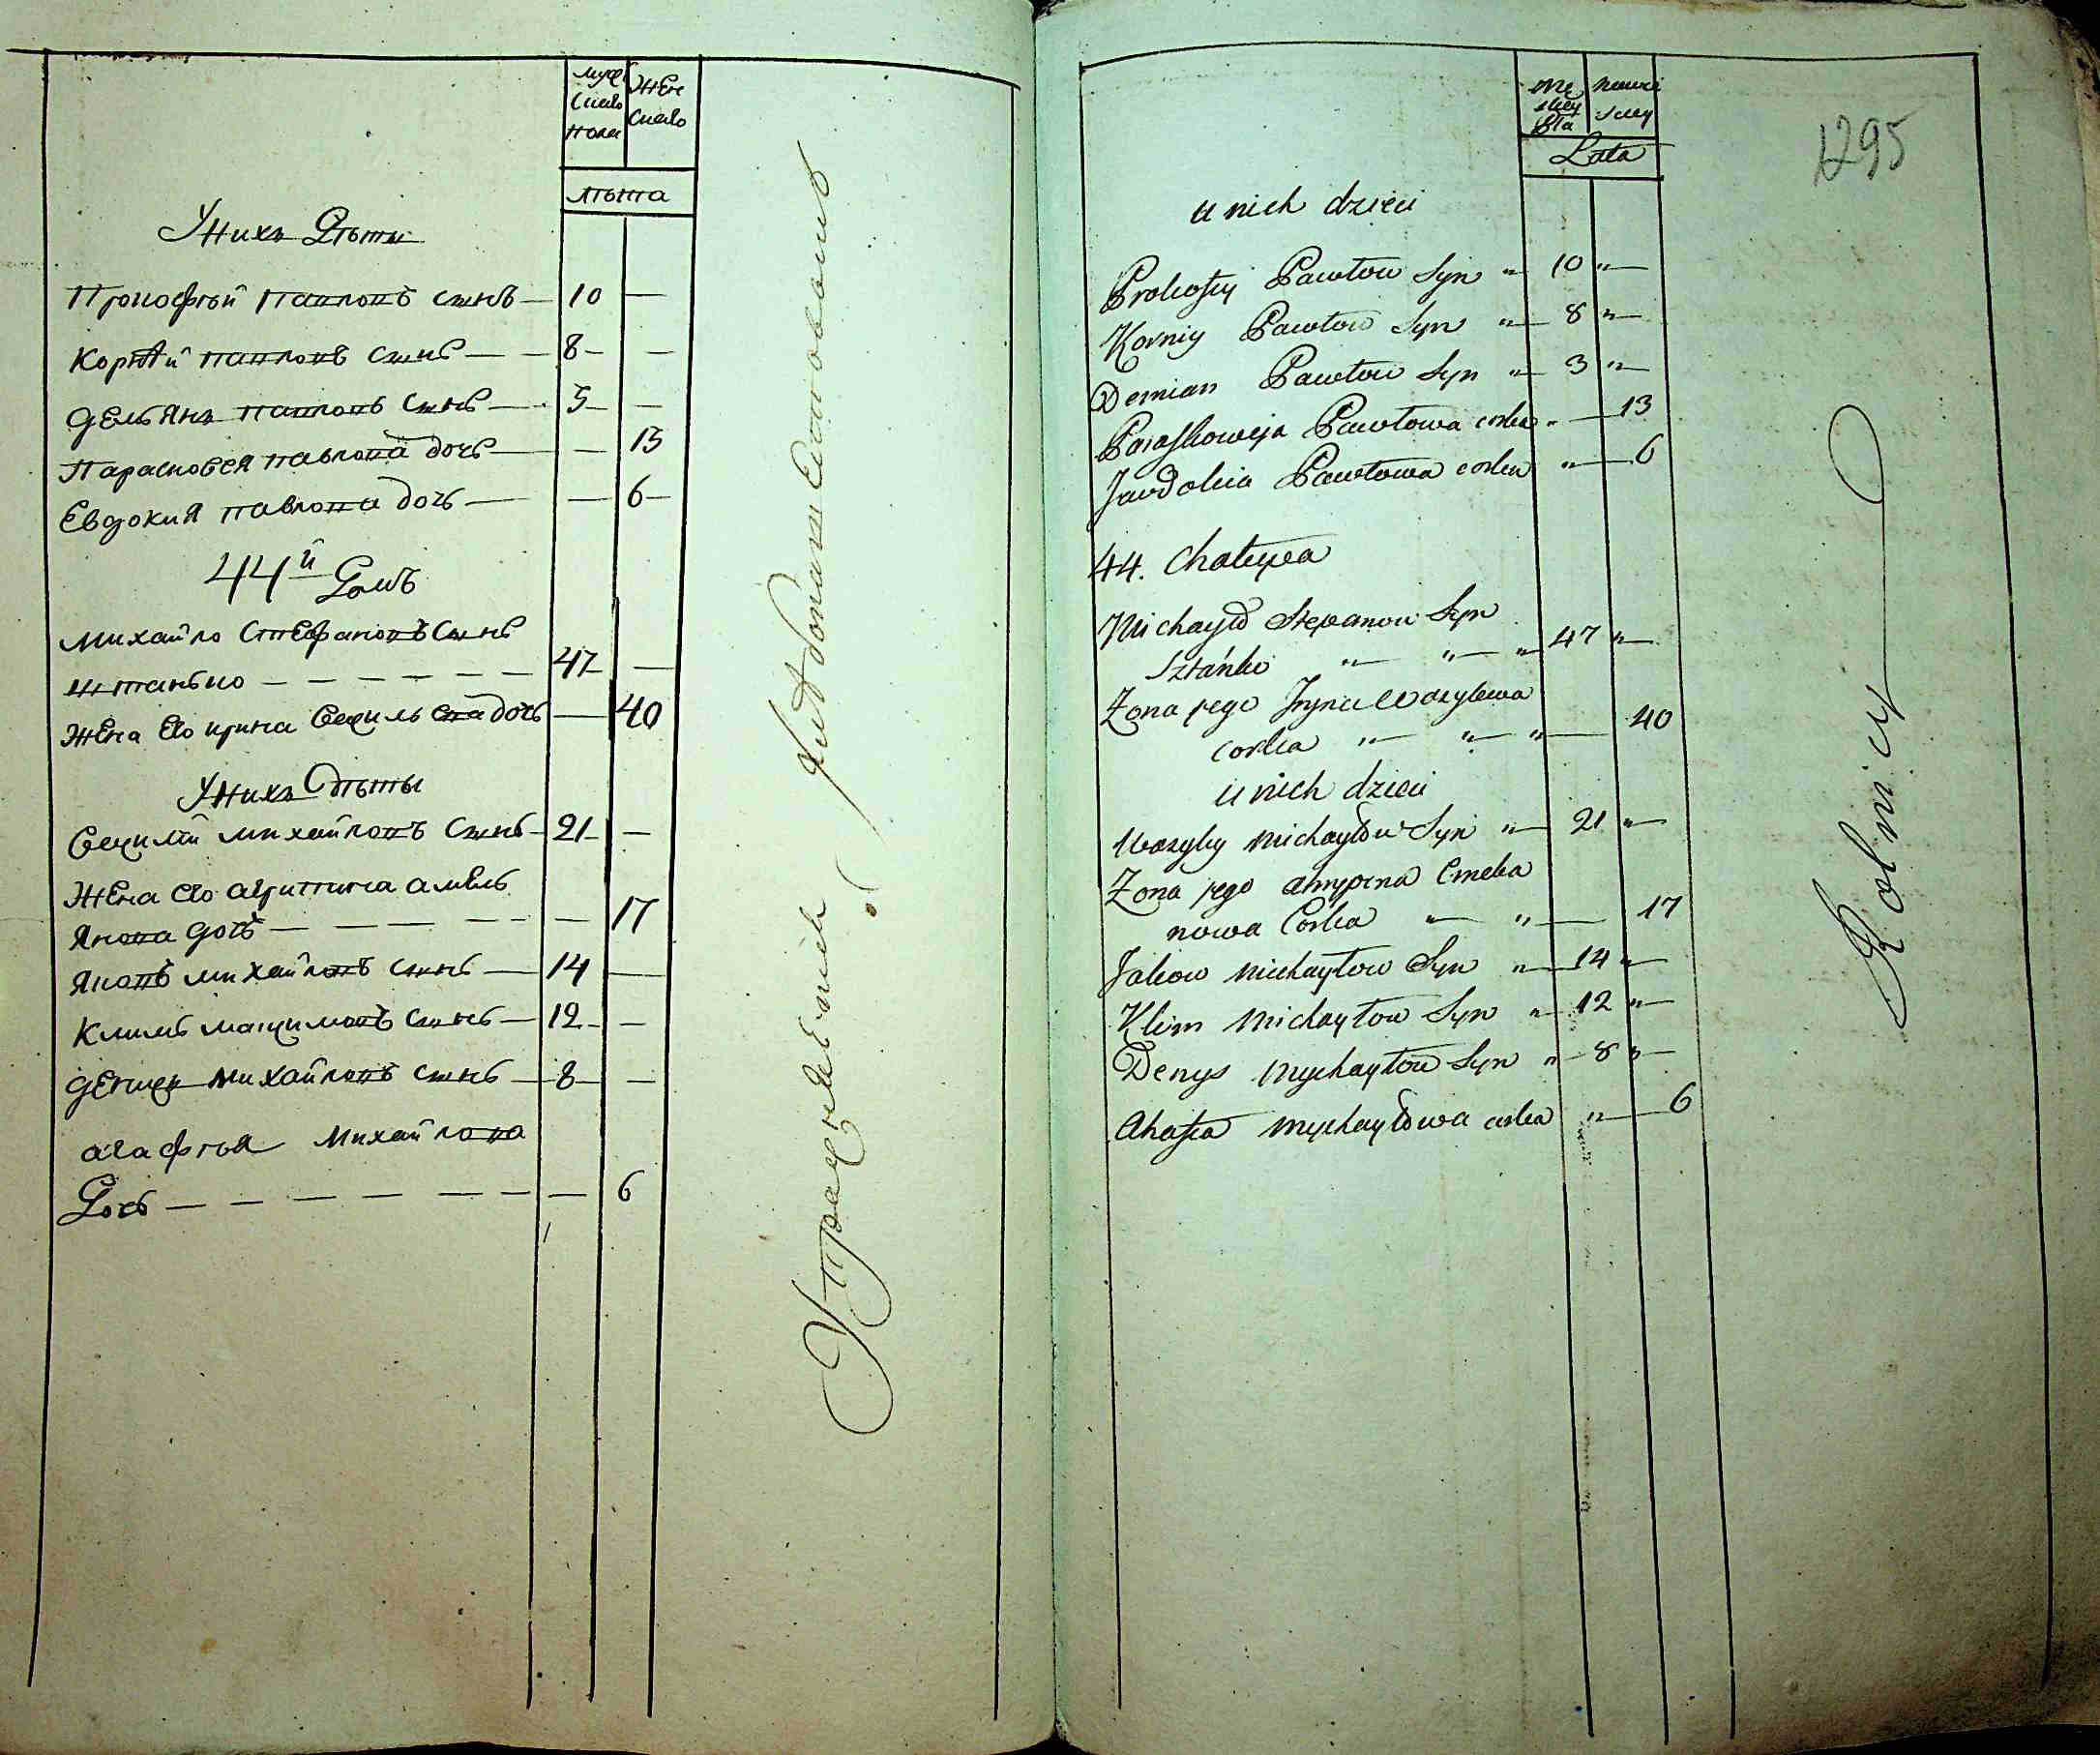 Муже
скаго
пола
Жен
скаго
лѣта
У нихъ Дѣти
Прокофѣй Павловъ сынъ — 10 —
Корнѣй Павловъ сынъ — — 8 — —
Демьянъ Павловъ сынъ — 3 — —
Парасковея Павлова дочь — — 13
Евдокия Павлова дочь — — 6 —
44й Домъ
Михайло Стефановъ Сынъ
Штанько — — — — — — 47 —
Жена Его Ирина Василь ева дочь — 40
У нихъ Дѣти
Василій Михайловъ Сынъ — 21 — —
Жена Его Агрипина Амель
янова дочь — — — — — — 17
Яковъ Михайловъ сынъ — 14 —
Климъ Максимовъ Сынъ — 12 — —
Денисъ Михайловъ сынъ — 8 — —
Агафѣя Михайлова
Дочь — — — — — — — 6
mę
skey
płci
Lata
1295
u nich dzieci
Prokofiy Pawłow Syn " — 10 " —
Korniy Pawłow Syn " — 8 " —
Demian Pawłow Syn " — 3 " —
Paraskoweja Pawłowa corka " — 13
Jawdokia Pawłowa corka " — 6
44. Chałupa
Michayło Stepanow Syn
Sztańko " — " — " 47 " —
Żona jego Iryna Wasylewa
corka " — " — " — 40
u nich dzieci
Wasyly Michayłow Syn " — 21 " —
Żona jego Ahrypina Emelia
nowa Corka " — " — 17
Jakow Michayłow Syn " — 14 " —
Klim Michayłow Syn " 12 " —
Denys Mychayłow Syn " — 8 " —
Ahafia Mychayłowa corka " — 6
Rolnicy